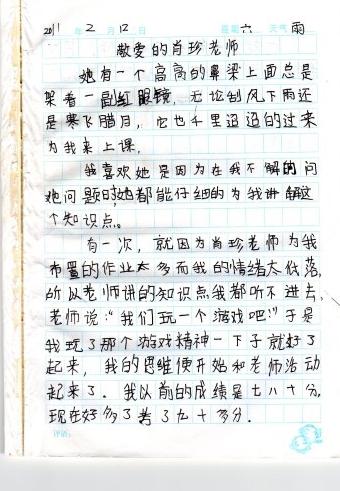 2011年2月12日 星期六 天气雨
敬爱的肖珍老师
她有一个高高的鼻梁上面总是
架着一副红眼镜，无论刮风下雨还
是寒飞腊月，它也千里迢迢的过来
为我来上课。
我喜欢她是因为在我不解的问
她问题时她都能仔细的为我讲解这
个知识点。
有一次，就因为肖珍老师为我
布置的作业太多而我的情绪太低落，
所以老师讲的知识点我都听不进去，
老师说：“我们玩一个游戏吧！”于是
我玩了那个游戏精神一下子就好了
起来，我的思维便开始和老师活动
起来了。我以前的成绩是七八十分，
现在好多了考了九十多分．
评语：